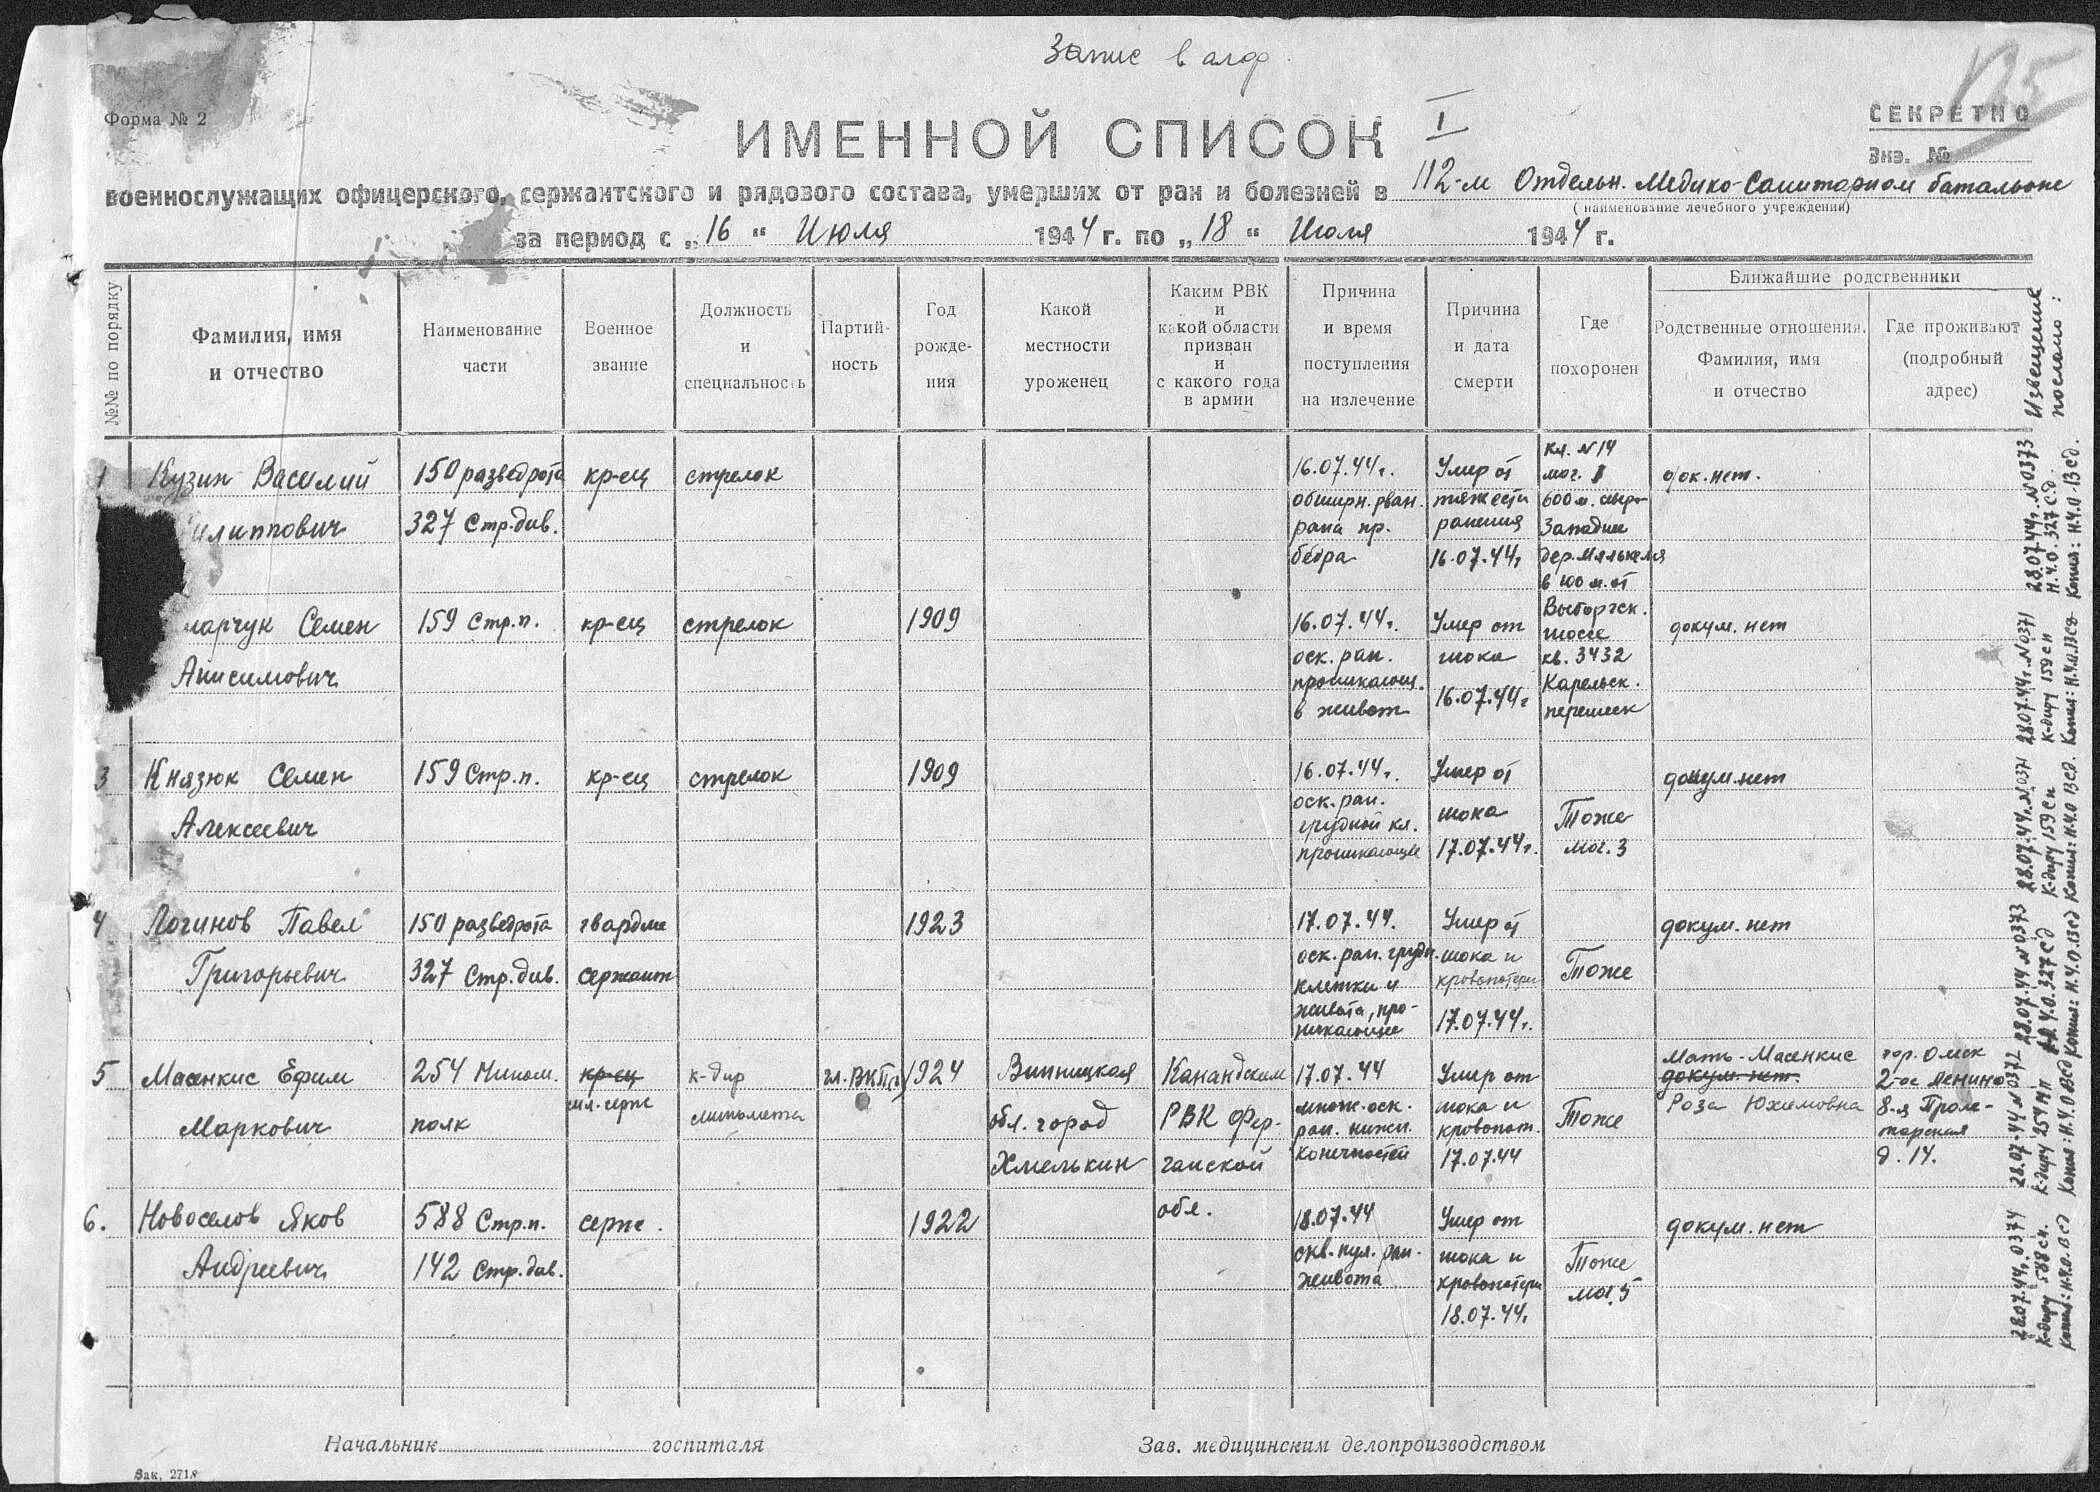 Запис в алф.
Форма № 2
125
СЕКРЕТНО
Экз. №
ИМЕННОЙ СПИСОК I
военнослужащих офицерского, сержантского и рядового состава, умерших от ран и болезней в 112-м Отдельн. Медико-Санитарном батальоне
(наименование лечебного учреждения)
за период с „16“ Июля 1944 г. по „18“ Июля 1944 г.
№№ по порядку
Фамилия, имя
и отчество
Наименование
части
Военное
звание
Должность
и
специальность
Партий-
ность
Год
рожде-
ния
Какой
местности
уроженец
Каким РВК
и
какой области
призван
и
с какого года
в армии
Причина
и время
поступления
на излечение
Причина
и дата
смерти
Где
похоронен
Ближайшие родственники
Родственные отношения.
Фамилия, имя
и отчество
Где проживают
(подробный
адрес)
Извещение
послано:
1
Кузин Василий
илиппович
150 разведрота
327 Стр.див.
кр-ец
стрелок
16.07.44г.
обширн. рван.
рана пр.
бедра
Умер от
тяжести
ранения
16.07.44г
Кл. №14
мог. 1
600 м. северо-
Западнее
дер.
в 100 м. от
Выборгск.
шоссе
кв. 3432
Карельск.
перешеек
док. нет.
28.07.44г. №0373
Н.Ч.О. 327 с.д.
Копия: Н.Ч.О. 13 сд.
марчук Семен
Анисимович
159 Стр.п.
кр-ец
стрелок
1909
16.07.44г.
оск. ран.
проникающ.
в живот
Умер от
шока
16.07.44г
докум. нет
28.07.44г. №0371
К-диру 159 сп
Копия: Н.Ч.О. 13 сд
3
Князюк Семен
Алексеевич
159 Стр.п.
кр-ец
стрелок
1909
16.07.44г.
оск. ран.
грудной кл.
проникающее
Умер от
шока
17.07.44г.
Тоже
мог. 3
докум. нет
28.07.44г. №0371
К-диру 159 сп
Копия: Н.Ч.О 13 сд.
4
Логинов Павел
Григорьевич
150 разведрота
327 Стр.див.
гвардие
сержант
1923
17.07.44.
оск. ран. грудн.
клетки и
живота, про-
никающее
Умер от
шока и
кровопотери
17.07.44г.
Тоже
докум. нет
28.07.44 №0373
Н.Ч.О. 327 сд
Копия: Н.Ч.О. 13 сд
5
Масенкис Ефим
Маркович
254 Мином.
полк
кр-ец
мл. серж
к-дир
миномета
чл. ВКП(б)
1924
Винницкая
обл. город
Хмелькин
Канандским
РВК Фер-
ганской
обл.
17.07.44
множ. оск.
ран. нижн.
конечностей
Умер от
шока и
кровопот.
17.07.44
Тоже
Мать - Масенкис
докум. нет.
Роза Юхимовна
гор. Омск
2-ое Ленино
8-я Проле-
тарская
д. 14.
28.07.44 №0372
К-диру 254 МП
Копия: Н.Ч.О 13 сд
6.
Новоселов Яков
Андреевич
588 Стр.п.
142 Стр.див.
серж.
1922
18.07.44
скв. пул. ран.
живота
Умер от
шока и
кровопотери
18.07.44г.
Тоже
мог. 5
докум. нет
28.07.44г. 0374
К-диру 588 сп.
Копия: Н.Ч.О. 13 сд
Начальник госпиталя
Зав. медицинским делопроизводством
Зак. 2718